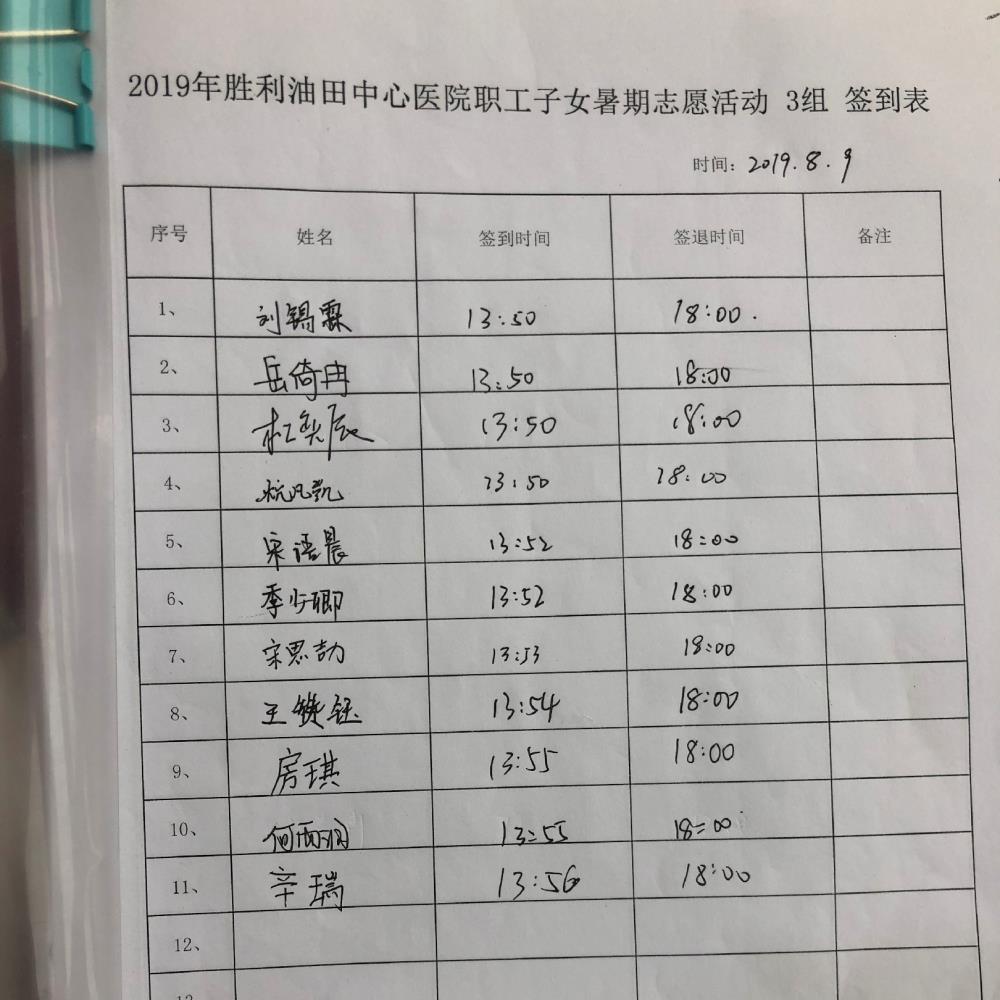 2019年胜利油田中心医院职工子女暑期志愿活动 3组 签到表
时间：2019.8.9
序号 姓名 签到时间 签退时间 备注
1、 刘锡霖 13:50 18:00.
2、 岳倚冉 13:50 18:00
3、 杜奕辰 13:50 18:00
4、 杭凡凯 13:50 18:00
5、 宋语晨 13:52 18:00
6、 季少卿 13:52 18:00
7、 宋思劼 13:53 18:00
8、 王 13:54 18:00
9、 房琪 13:55 18:00
10、 何雨润 13:55 18:00
11、 辛瑞 13:56 18:00
12、